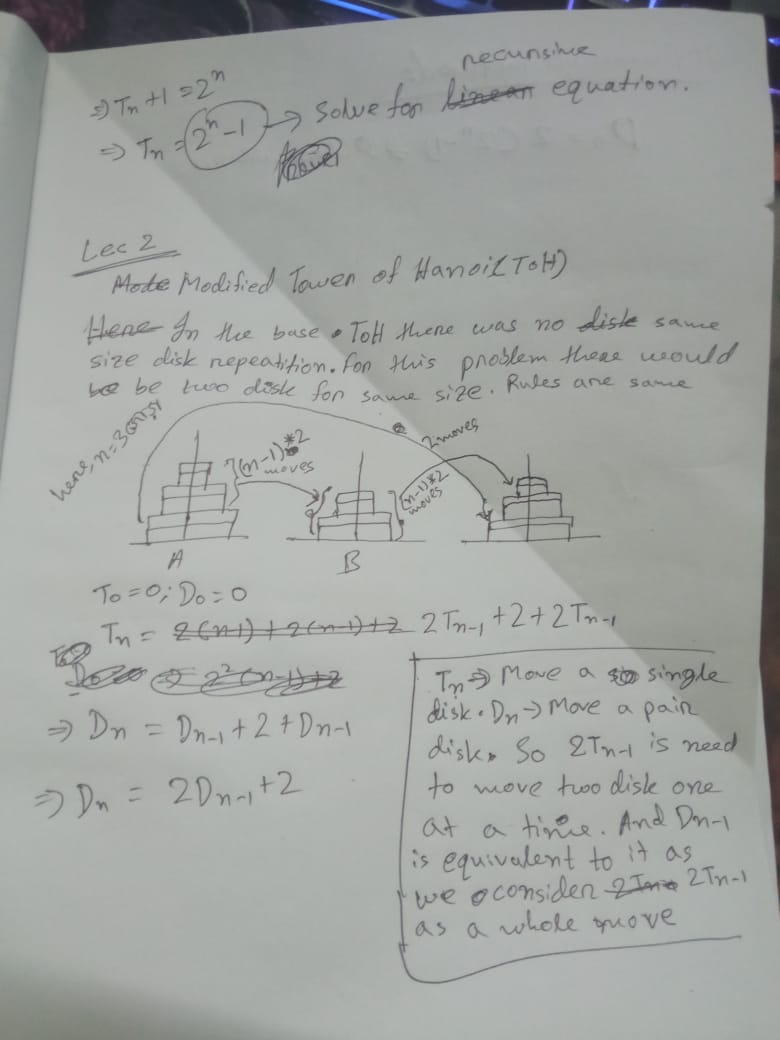 recursive
⇒ Tn + 1 = 2^n
⇒ Tn = 2^n - 1 → Solve for linear equation.
Lec 2
Mode Modified Tower of Hanoi (ToH)
Here In the base ToH there was no disk same
size disk repeatition. For this problem there would
be be two disk for same size. Rules are same
here, n = 3
(n-1)*2
moves
2 moves
(n-1)*2
moves
A
B
T0 = 0; D0 = 0
Tn = 2(n-1) + 2(n-1) + 2 2Tn-1 + 2 + 2Tn-1
⇒ 2^2(n-1)+2
⇒ Dn = Dn-1 + 2 + Dn-1
⇒ Dn = 2Dn-1 + 2
Tn ⇒ Move a single
disk. Dn → Move a pair
disk. So 2Tn-1 is need
to move two disk one
at a time. And Dn-1
is equivalent to it as
we consider 2Tn 2Tn-1
as a whole move